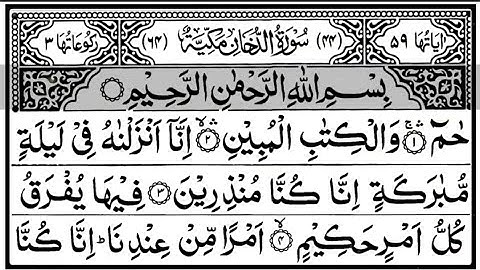 اٰیَاتُهَا ٥٩ (٤٤) سُوْرَةُ الدُّخَانِ مَكِّيَّةٌ (٦٤) رُكُوْعَاتُهَا ٣
بِسْمِ اللّٰهِ الرَّحْمٰنِ الرَّحِيْمِ
حٰمٓ ۚۛ ١ وَالْكِتٰبِ الْمُبِيْنِ ۙۛ ٢ اِنَّاۤ اَنْزَلْنٰهُ فِيْ لَيْلَةٍ
مُّبٰرَكَةٍ اِنَّا كُنَّا مُنْذِرِيْنَ ٣ فِيْهَا يُفْرَقُ
كُلُّ اَمْرٍ حَكِيْمٍ ۙ ٤ اَمْرًا مِّنْ عِنْدِنَا ؕ اِنَّا كُنَّا